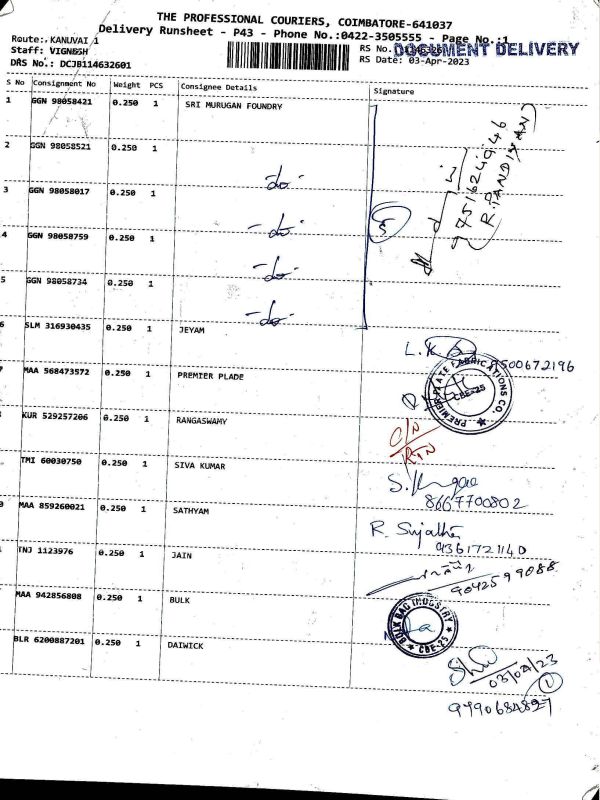 THE PROFESSIONAL COURIERS, COIMBATORE-641037
Delivery Runsheet - P43 - Phone No.:0422-3505555 - Page No.:1
Route: KANUVAI 1
Staff: VIGNESH
DRS No.: DCJB114632601
RS No.
DOCUMENT DELIVERY
RS Date: 03-Apr-2023
S No Consignment No Weight PCS Consignee Details Signature
1 GGN 98058421 0.250 1 SRI MURUGAN FOUNDRY
2 GGN 98058521 0.250 1 -do-
3 GGN 98058017 0.250 1 -do-
4 GGN 98058759 0.250 1 -do-
5 GGN 98058734 0.250 1 -do-
7516249946
R. PANDIYAN
5
6 SLM 316930435 0.250 1 JEYAM
9500672196
7 MAA 568473572 0.250 1 PREMIER PLADE
PREMIER PLATE FABRICATIONS CO.
CBE-25
KUR 529257206 0.250 1 RANGASWAMY
C/N
RTN
TMI 60030750 0.250 1 SIVA KUMAR
8667700802
0 MAA 859260021 0.250 1 SATHYAM
R. Sujatha
9361721140
TNJ 1123976 0.250 1 JAIN
9042599088
MAA 942856808 0.250 1 BULK
BULK BAG INDUSTRY
CBE-25
BLR 6200887201 0.250 1 DAIWICK
03/04/23
1
9790684827